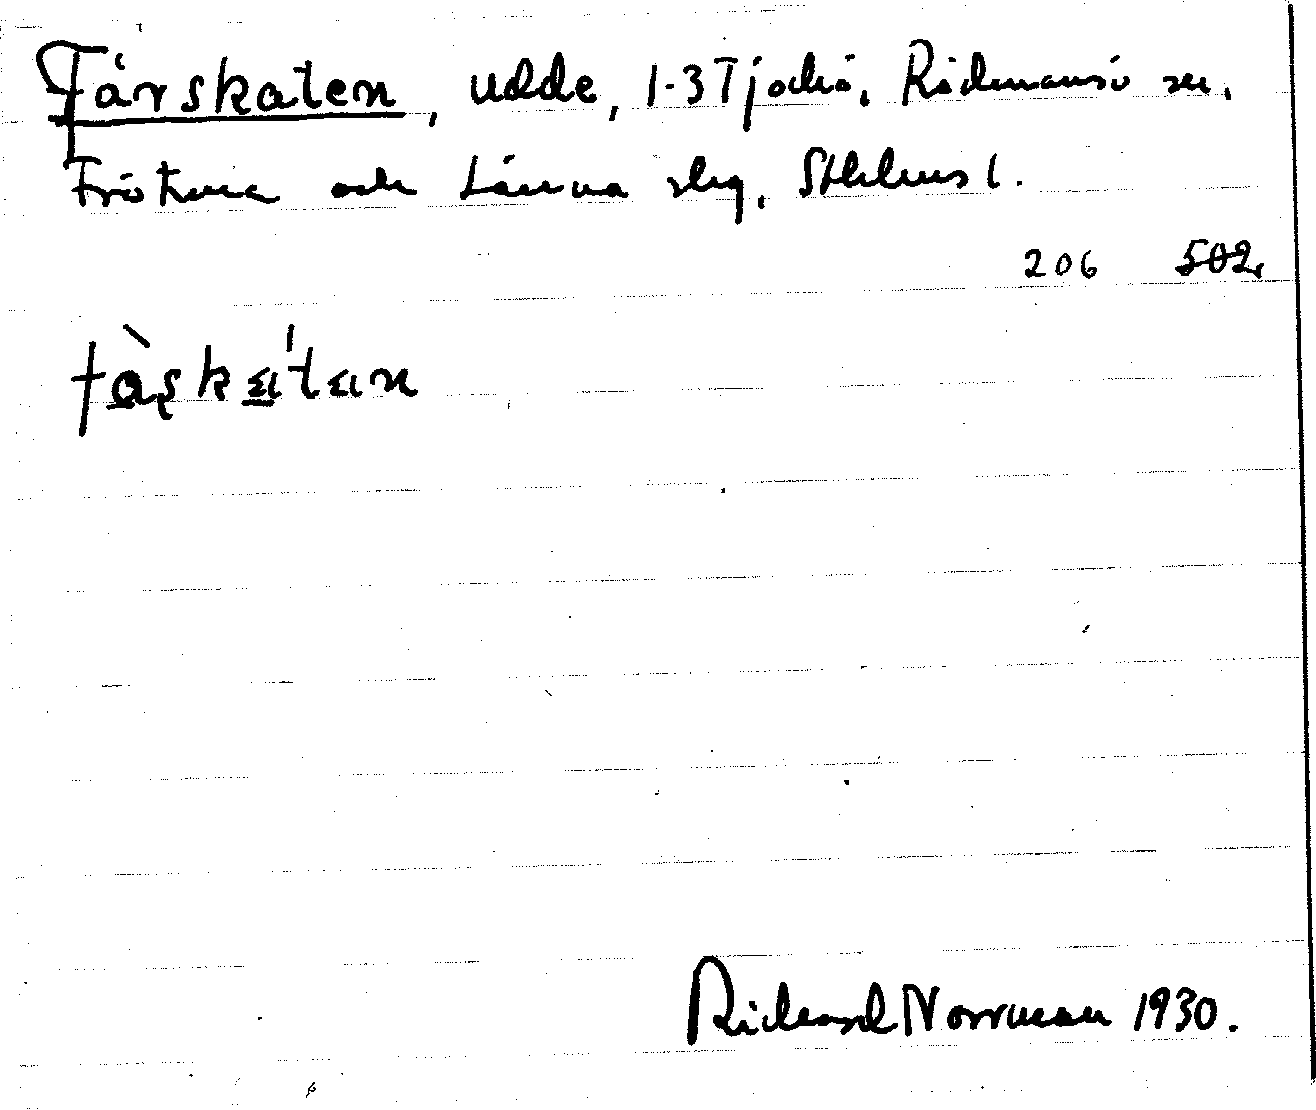 Fårskaten, udde, 1-3 Tjockö, Rådmansö sn.
Frötuna och Länna slg, Sthlms l.
206 502.
fàskátan
Rickard Norrman 1930.